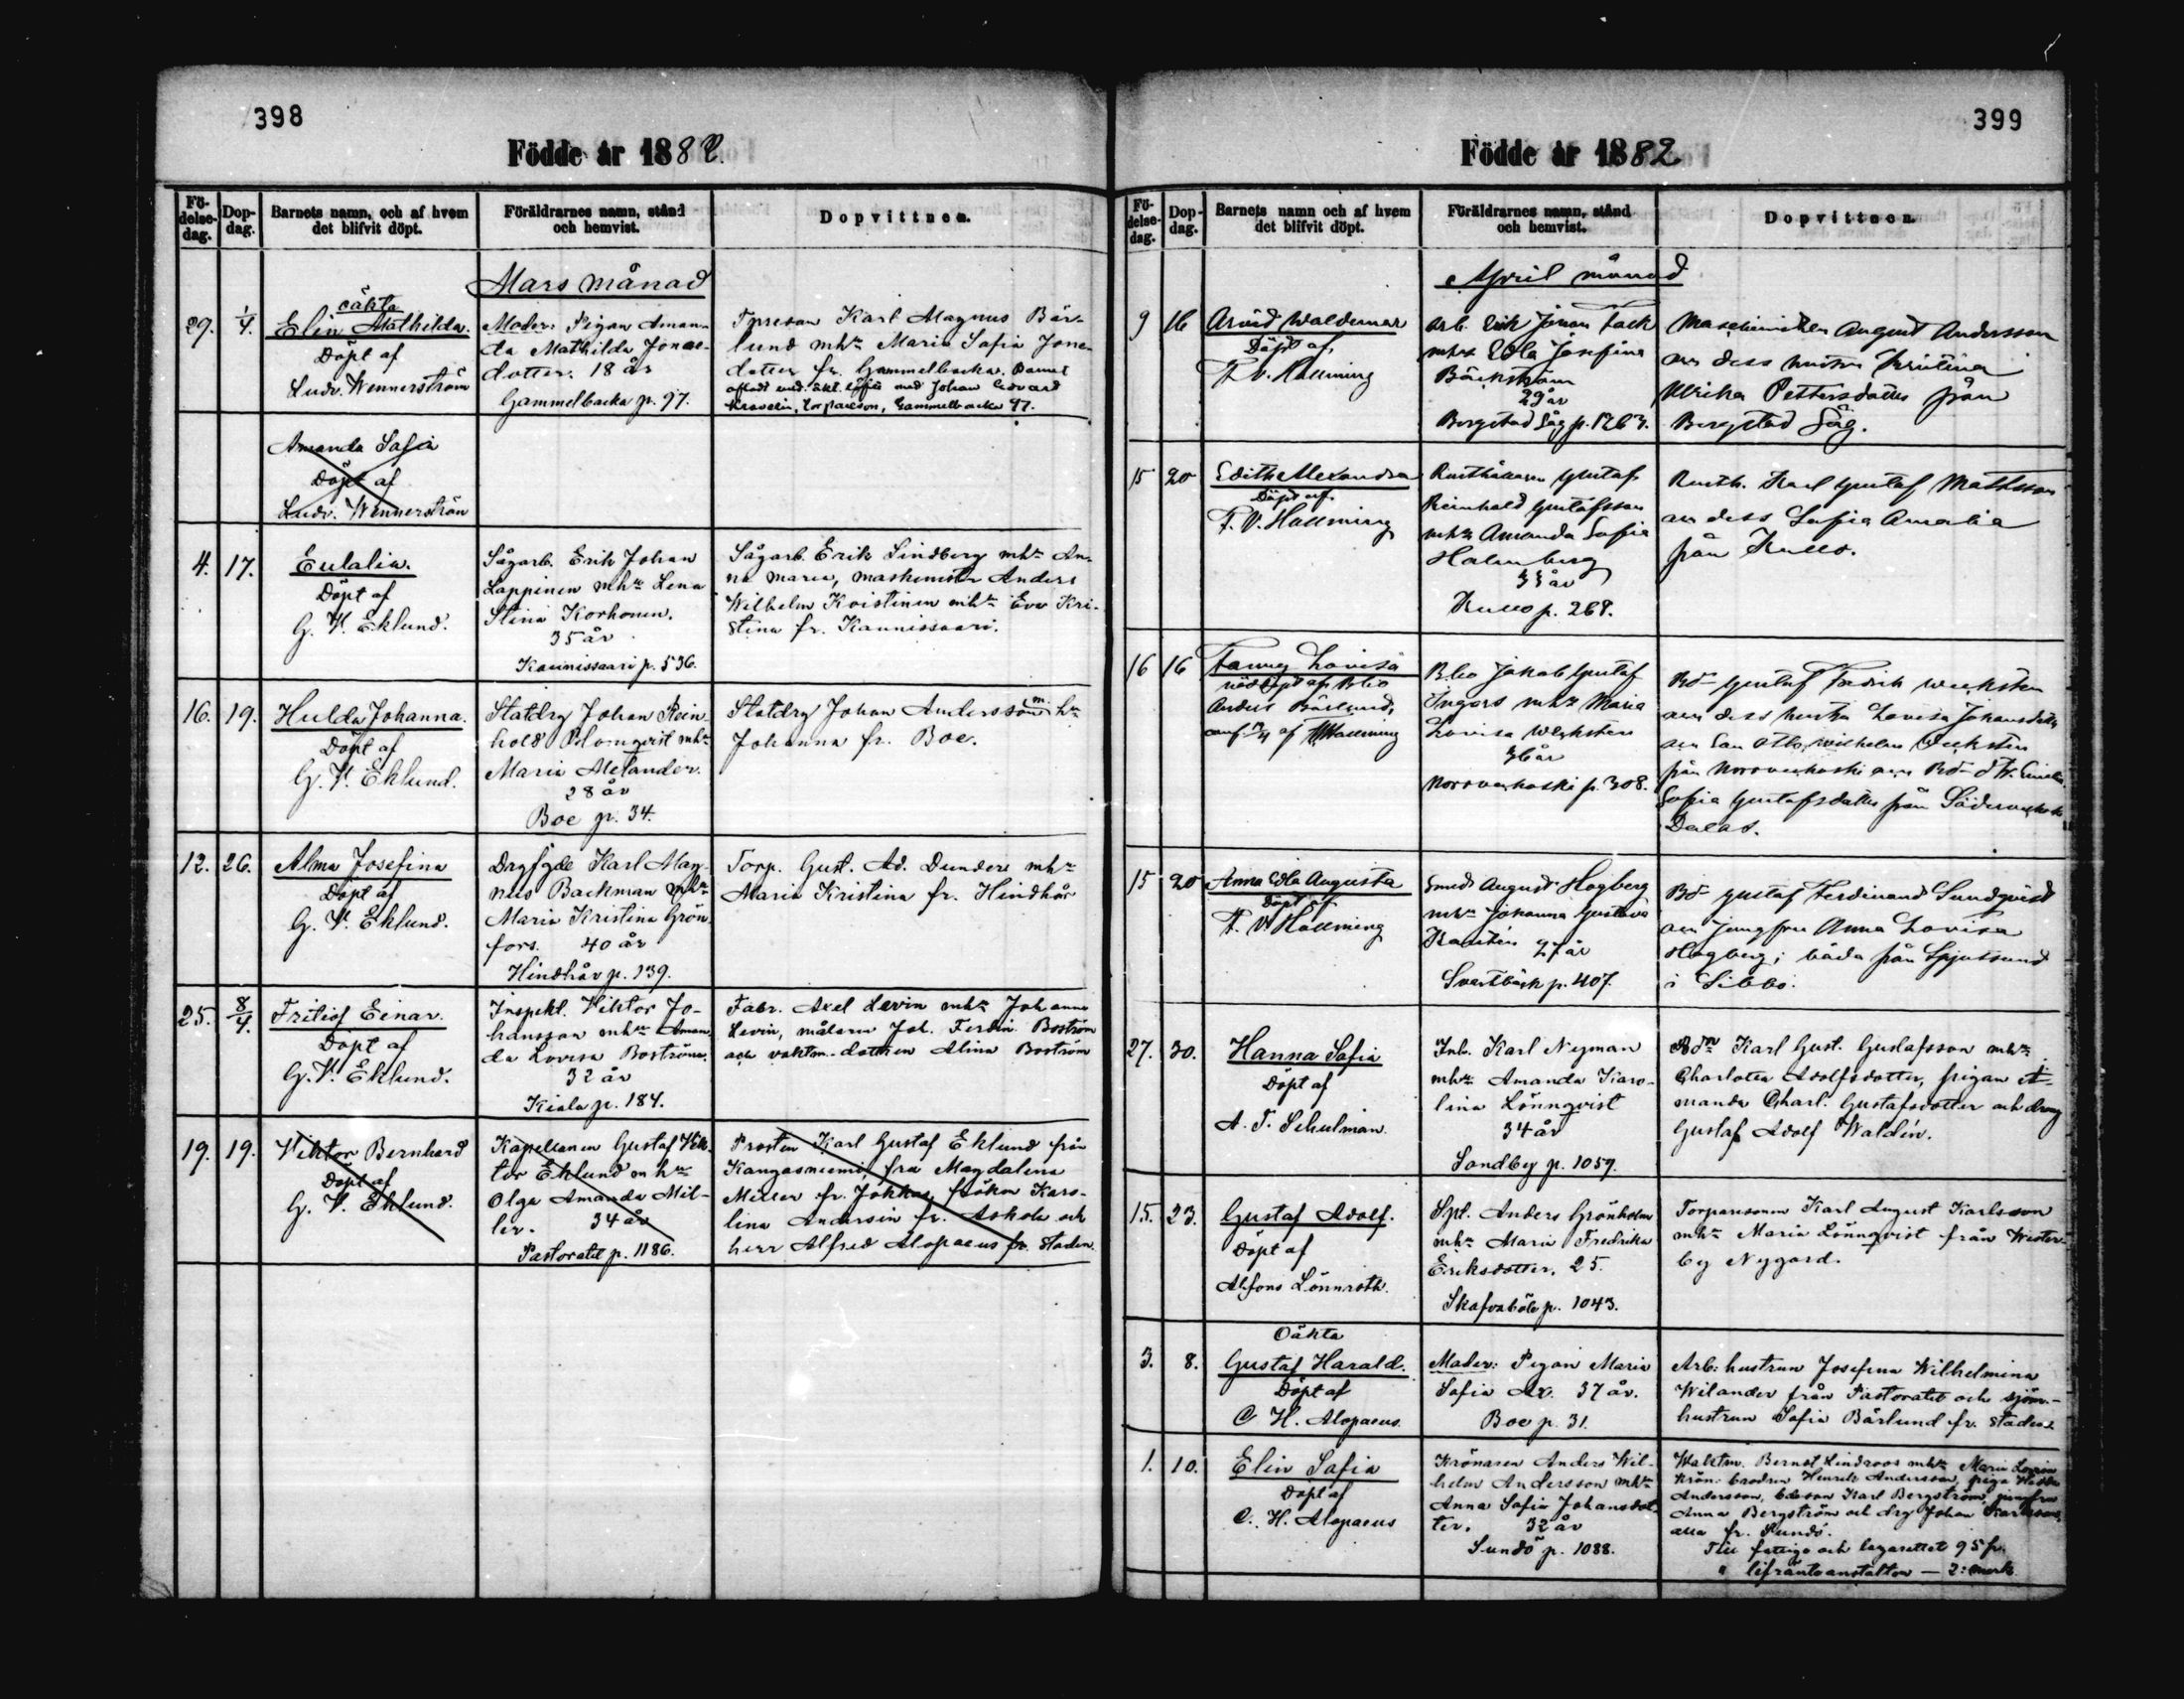 398
Födde år 1882.
Fö-
delse-
dag.
Dop-
dag.
Barnets namn, och af hvem
det blifvit döpt.
Föräldrarnes namn, stånd
och hemvist.
Dopvittnen.
Mars månad
29. 1/4.
oäkta
Elin Mathilda.
Döpt af
Ludv. Wennerström
Moder: Pigan Aman-
da Mathilda Jonas-
dotter. 18 år
Gammelbacka p. 97.
Karl Magnus Bär-
lund mhu Maria Sofia Jonas-
dotter fr. Gammelbacka. Barnet
med Johan Edvard
Gammelbacka 97.
Amanda Sofia
Döpt af
Ludv. Wennerström
4. 17.
Eulalia.
Döpt af
G. V. Eklund.
Sågarb. Erik Johan
Lappinen mhu Lena
Stina Korhonen.
35 år
Kaunissaari p. 536.
Sågarb. Erik Lindberg mhu An-
na Maria, maskinister Anders
Wilhelm Koistinen mhu Eva Kri-
stina fr. Kaunissaari.
16. 19.
Hulda Johanna.
Döpt af
G. V. Eklund.
Statdrg Johan Rein-
hold Blomqvist mhu
Maria Melander.
28 år
Boe p. 34.
Statdrg Johan Andersson m. hu
Johanna fr. Boe.
12. 26.
Alma Josefina
Döpt af
G. V. Eklund.
Karl Mag-
nus Backman mhu
Maria Kristina Grön-
fors. 40 år
Hindhår p. 139.
Torp. Gust. Ad. Dunder mhu
Maria Kristina fr. Hindhår
25. 8/4.
Fritiof Einar.
Döpt af
G. V. Eklund.
Inspekt. Viktor Jo-
hansson mhu Aman-
da Lovisa Boström.
32 år
Kiala p. 184.
Fabr. Axel Levin mhu Johanna
Levin, målaren Joh. Ferdin. Boström
och vaktm. dottren Alina Boström
19. 19.
Viktor Bernhard
Döpt af
G. V. Eklund.
Kapellanen Gustaf Vik-
tor Eklund m hu
Olga Amanda Mil-
ler. 34 år
Pastoratet p. 1186.
Prosten Karl Gustaf Eklund från
Kangasniemi, fru Magdalena
Miller fr. Jokkas, fröken Karo-
lina Andersin fr. Askola och
herr Alfred Alopaeus fr. staden.
399
Födde år 1882
Fö-
delse-
dag.
Dop-
dag.
Barnets namn och af hvem
det blifvit döpt.
Föräldrarnes namn, stånd
och hemvist.
Dopvittnen.
April månad
9 16
Arvid Waldemar
Döpt af
F. V. Hallming
Arb. Erik Johan Fack
mhu Edla Josefina
Bäckström
29 år
Borgstad Såg p. 1263.
August Andersson
och dess hustru Kristina
Ulrika Pettersdotter från
Borgstad Såg.
15 20
Edith Alexandra
Döpt af
F. V. Hallming
Rusthållaren Gustaf
Reinhold Gustafsson
mhu Amanda Sofia
Holmberg
33 år
Kullo p. 268.
Rusth. Karl Gustaf Mattsson
och dess Sofia Amalia
från Kullo.
16 16
Fanny Lovisa
nöddöpt af
Anders Bärlund,
af Hallming
Jakob Gustaf
Ingers mhu Maria
Lovisa Weckstén
36 år
Norrveckoski p. 308.
Gustaf Fredrik Weckstén
och dess hustru Lovisa Johansdotter
Otto Wilhelm Weckstén
från Norrveckoski
Sofia Gustafsdotter från Söderveckoski
15 20
Anna Edla Augusta
Döpt af
F. V. Hallming
Smed. August Hogberg
mhu Johanna Gustava
27 år
Svartbäck p. 407.
Gustaf Ferdinand Sundqvist
och jungfru Anna Lovisa
Hogberg; båda från Spjutsund
i Sibbo.
27. 30.
Hanna Sofia
Döpt af
A. T. Schulman.
Inh. Karl Nyman
mhu Amanda Karo-
lina Lönnqvist
34 år
Sandby p. 1059.
Karl Gust. Gustafsson mhu
Charlotta Adolfsdotter, pigan A-
manda Charl. Gustafsdotter och dreng
Gustaf Adolf Waldén.
15. 23.
Gustaf Adolf.
Döpt af
Alfons Lönnroth.
Spt. Anders Grönholm
mhu Maria Fredrika
Eriksdotter. 25.
Skafvaböle p. 1043.
Torparsonen Karl August Karlsson
mhu Maria Lönnqvist från Wester-
by Nygård.
3. 8.
Oäkta
Gustaf Harald.
Döpt af
C. H. Alopaeus.
Moder: Pigan Maria
Sofia 37 år.
Boe p. 31.
Arb: hustrun Josefina Wilhelmina
Wilander från Pastoratet och sjöm.-
hustrun Sofia Bärlund fr. staden.
1. 10.
Elin Sofia
Döpt af
C. H. Alopaeus
Krönaren Anders Wil-
helm Andersson mhu
Anna Sofia Johansdot-
ter. 32 år
Sundö p. 1088.
Waktm. Bernt Lindroos mhu Maria Lovisa
Henrik Andersson, piga Hilda
Andersson, Karl Bergström, jungfru
Anna Bergström och drg Johan Karlsson
alla fr. Sundö.
Till fattiga och lazarettet 95 p.
" lifränteanstalten — 2: mark.